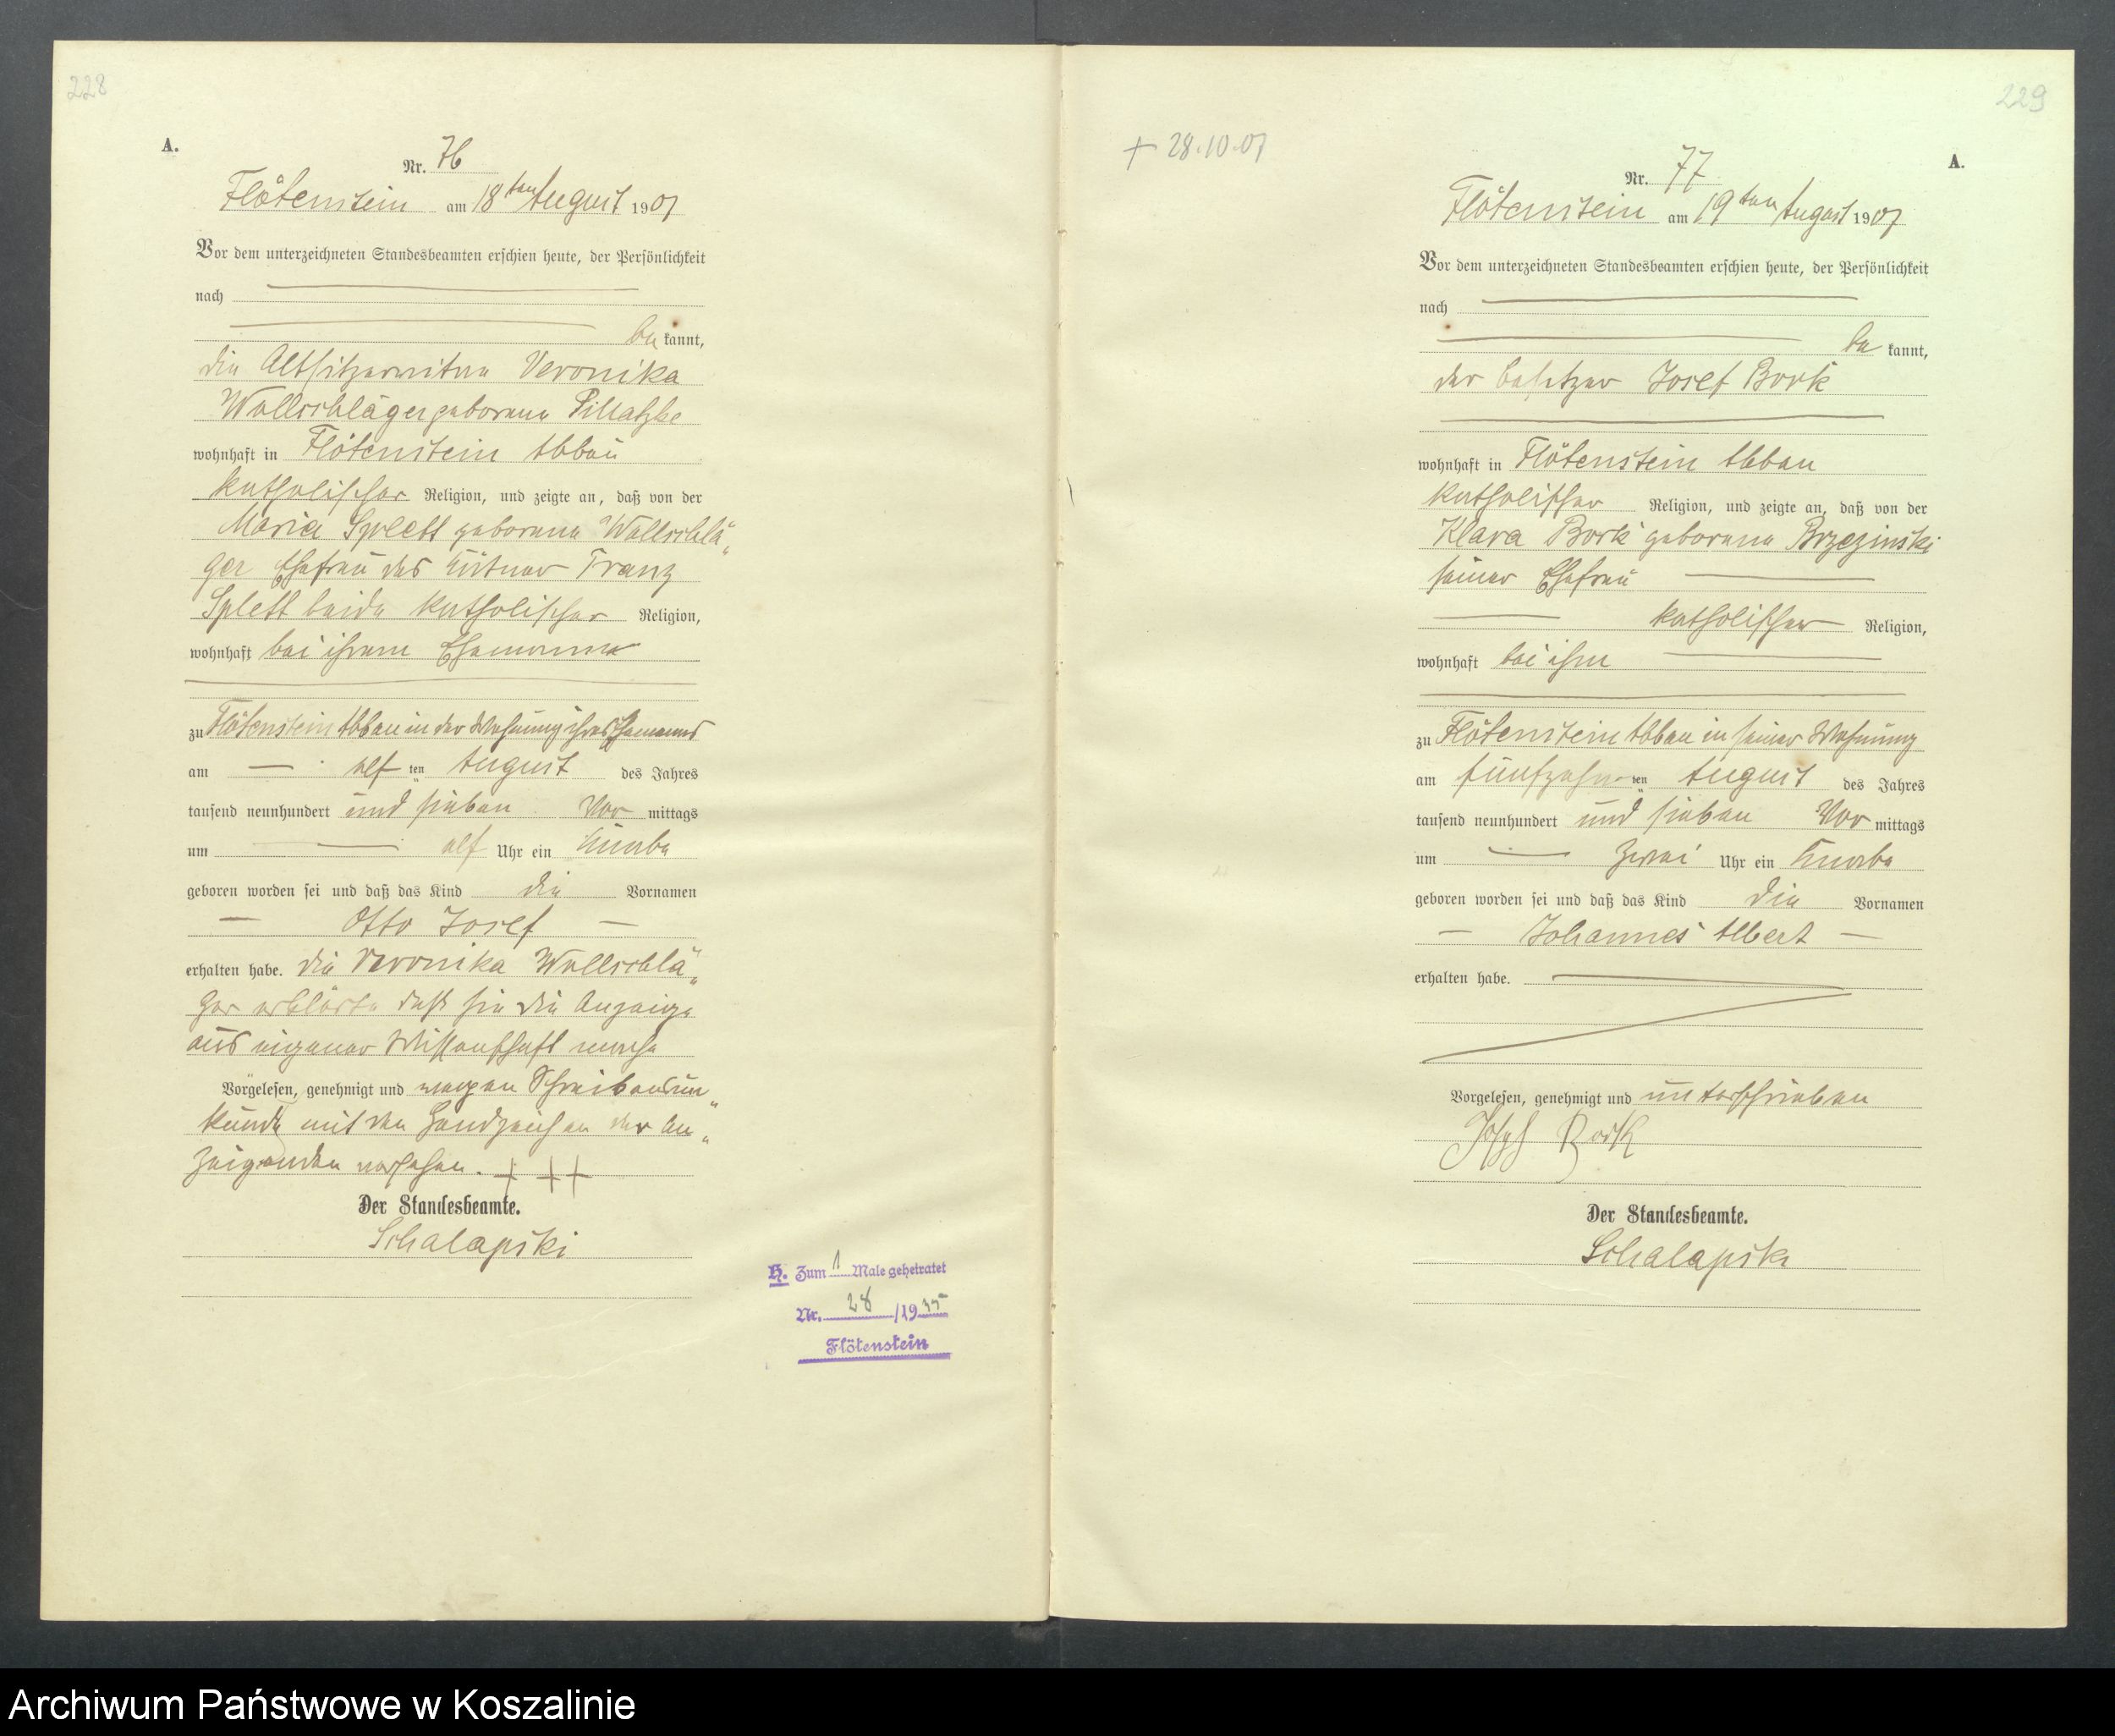 228
A.
Nr. 76
Flötenstein am 18ten August 1907
Vor dem unterzeichneten Standesbeamten erschien heute, der Persönlichkeit
nach
be kannt,
die Altsitzerwitwe Veronika
Wollschläger geborene Pillatzke
wohnhaft in Flötenstein Abbau
katholischer Religion, und zeigte an, daß von der
Maria Splett geborene Wollschlä„
ger Ehefrau des Kätner Franz
Splett beide katholischer Religion,
wohnhaft bei ihrem Ehemanne
zu Flötenstein Abbau in der Wohnung ihres Ehemanns
am elf ten August des Jahres
tausend neunhundert und sieben Vor mittags
um elf Uhr ein Knabe
geboren worden sei und daß das Kind die Vornamen
Otto Josef
erhalten habe. Die Veronika Wollschlä„
ger erklärte daß sie die Anzeige
aus eigener Wissenschaft mache
Vorgelesen, genehmigt und wegen Schreibensun„
kunde mit den Handzeichen der An„
zeigenden versehen. + ++
Der Standesbeamte.
Schalapski
H. Zum 1 Male geheiratet
Nr. 28 /19 35
Flötenstein
229
+ 28.10.07
A.
Nr. 77
Flötenstein am 19ten August 1907
Vor dem unterzeichneten Standesbeamten erschien heute, der Persönlichkeit
nach
be kannt,
der Besitzer Josef Bork
wohnhaft in Flötenstein Abbau
katholischer Religion, und zeigte an, daß von der
Klara Bork geborene Brzezinski
seiner Ehefrau
katholischer Religion,
wohnhaft bei ihm
zu Flötenstein Abbau in seiner Wohnung
am fünfzehn ten August des Jahres
tausend neunhundert und sieben Vor mittags
um zwei Uhr ein Knabe
geboren worden sei und daß das Kind die Vornamen
Johannes Albert
erhalten habe.
Vorgelesen, genehmigt und unterschrieben
Josef Bork
Der Standesbeamte.
Schalapski
Archiwum Państwowe w Koszalinie